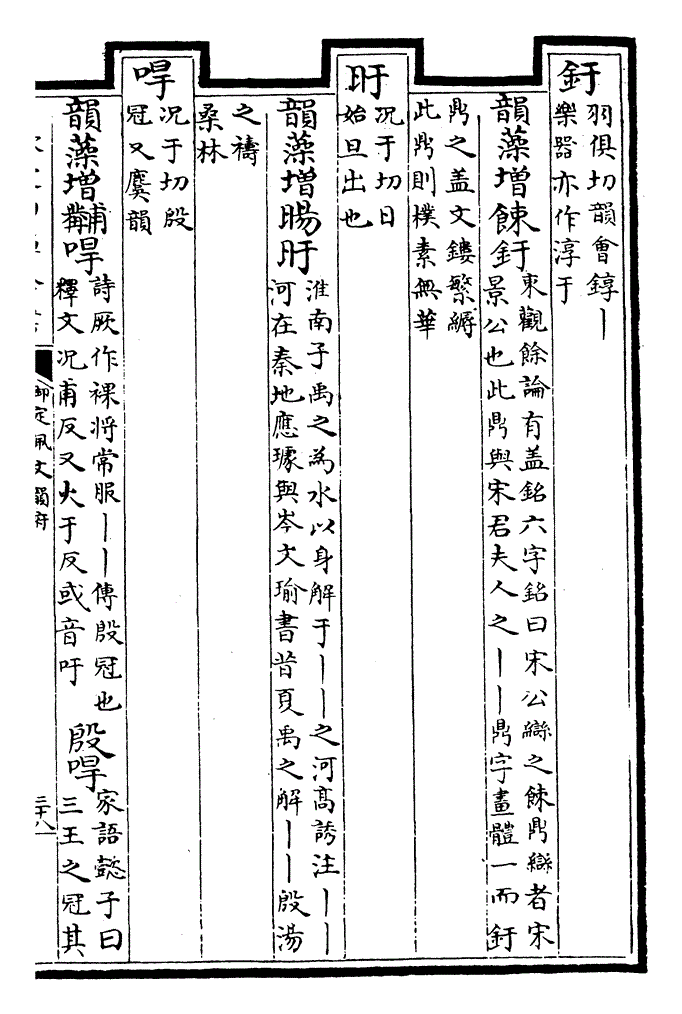 釪
羽俱切韻會錞丨
樂器亦作淳于
韻藻增餗釪
東觀餘論有盖銘六字銘曰宋公䜌之餗鼎䜌者宋
景公也此鼎與宋君夫人之丨丨鼎字畫體一而釪
鼎之盖文鏤繁縟
此鼎則樸素無華
旴
况于切日
始旦出也
韻藻增暘旴
淮南子禹之為水以身解于丨丨之河高誘注丨丨
河在秦地應璩與岑文瑜書昔夏禹之解丨丨殷湯
之禱
桑林
冔
况于切殷
冠又麌韻
韻藻增黼冔
詩厥作祼將常服丨丨傳殷冠也
釋文况甫反又火于反或音吁
殷冔
家語懿子曰
三王之冠其
御定佩文韻府
三十八